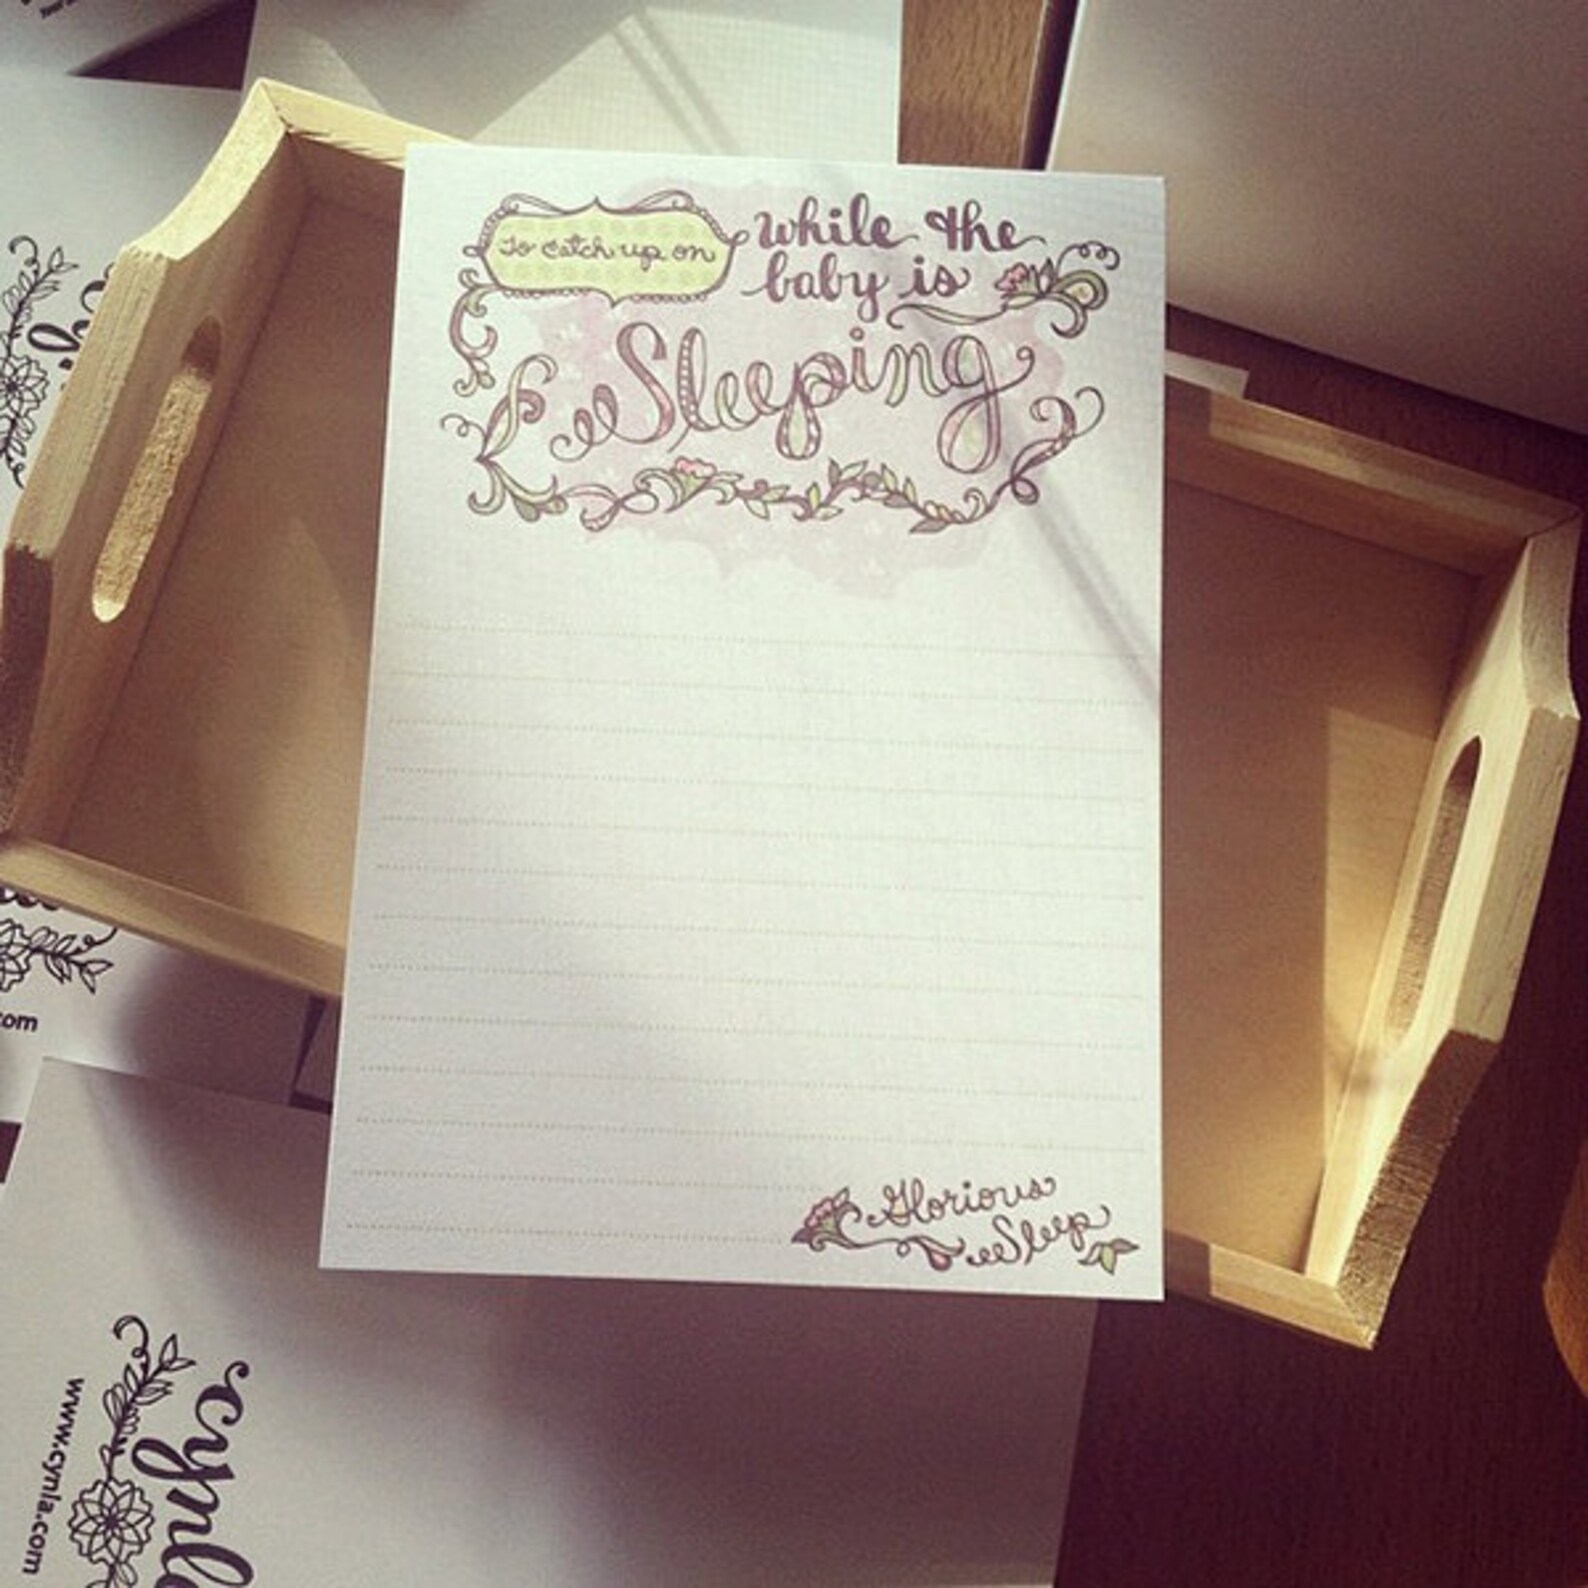 To catch up on
while the
baby is
Sleeping
Glorious
Sleep
com
www.cynla.com